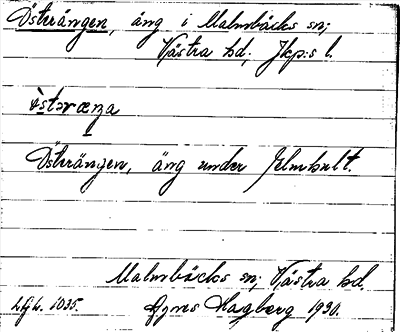 Österängen, äng i Malmbäcks sn;
Västra hd, Jkp:s l.
östəræŋa
Österängen, äng under Jelmhult.
Malmbäcks sn; Västra hd.
Lfl. 1035. Agnes Hagberg 1930.